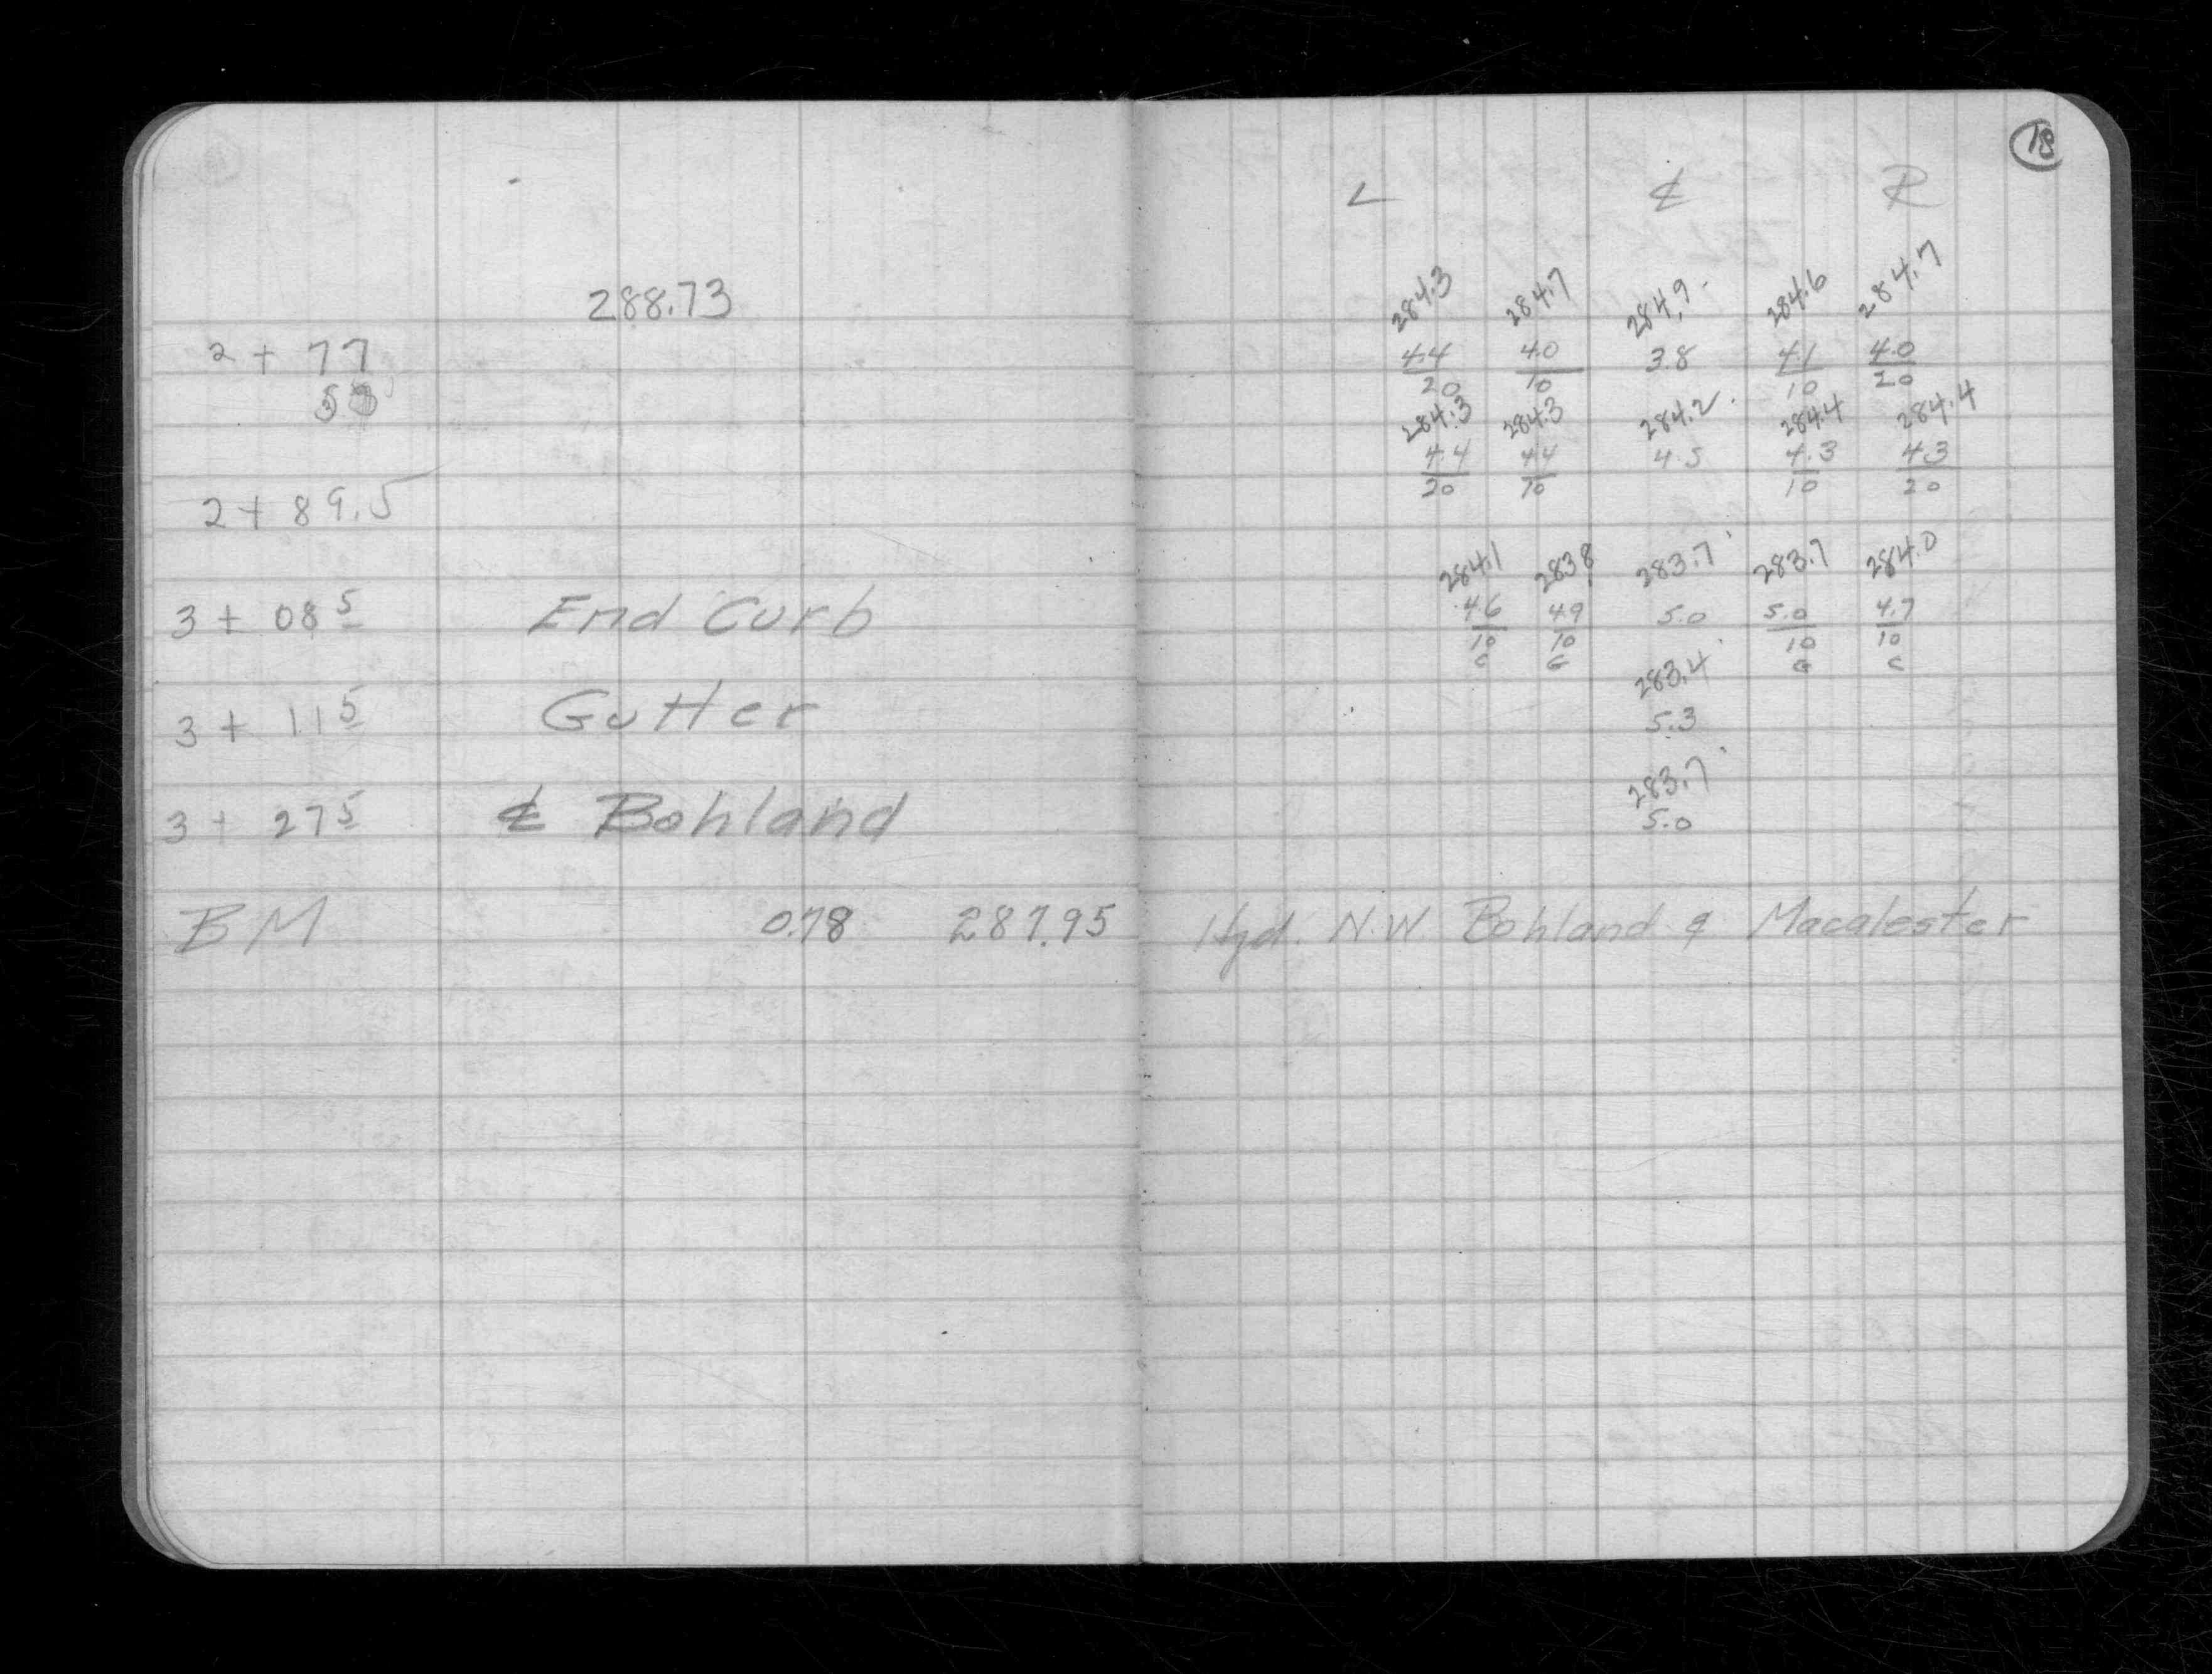 18
L ℄ R
288.73
284.3 284.7 284.9 284.6 284.7
2 + 77
4.4 4.0 3.8 4.1 4.0
20 10 10 20
284.3 284.3 284.2 284.4 284.4
4.4 4.4 4.5 4.3 4.3
20 10 10 20
2 + 89.5
284.1 283.8 283.7 283.7 284.0
3 + 08 5 End Curb
4.6 4.9 5.0 5.0 4.7
10 10 10 10
C G G C
283.4
3 + 11 5 Gutter
5.3
283.7
3 + 27 5 ℄ Bohland
5.0
BM 0.78 287.95 Hyd. N.W. Bohland & Macalester